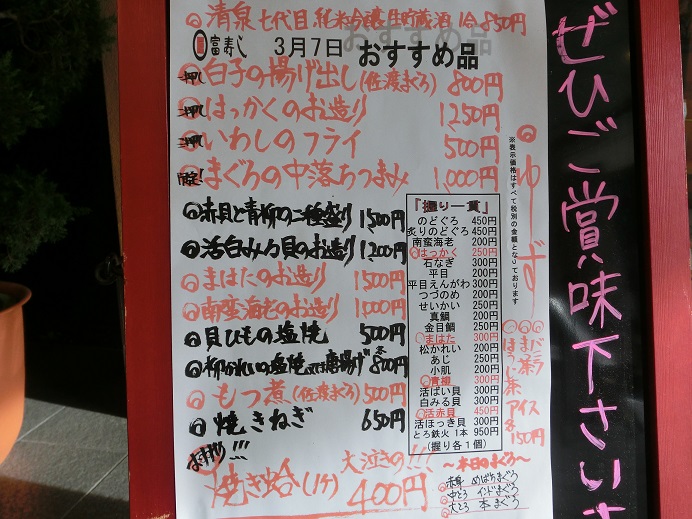 ◎清泉 七代目 純米吟醸生貯蔵酒 1合 850円
富寿し 3月7日 おすすめ品
一押し ◎白子の揚げ出し(佐渡まぐろ) 800円
二押し ◎はっかくのお造り 1,250円
三押し ◎いわしのフライ 500円
限定! ◎まぐろの中落ちつまみ 1,000円
◎赤貝と青柳の二種盛り 1,500円
◎活白みる貝のお造り 1,200円
◎まはたのお造り 1500円
◎南蛮海老のお造り 1,000円
◎貝ひもの塩焼 500円
◎柳かれいの塩焼又は唐揚げ 800円
◎もつ煮(佐渡まぐろ) 500円
◎焼きねぎ 650円
おすすめ!!!
焼き蛤(1ケ) 400円
大泣きの!!!
「握り一貫」
のどぐろ 450円
炙りのどぐろ 450円
南蛮海老 200円
◎はっかく 250円
石なぎ 300円
平目 200円
平目えんがわ 300円
つづのめ 200円
せいかい 250円
真鯛 200円
金目鯛 250円
◎まはた 300円
松かれい 200円
あじ 250円
小肌 200円
◎青柳 300円
活ばい貝 300円
白みる貝 300円
◎活赤貝 450円
活ほっき貝 300円
とろ鉄火 1本 950円
(握り各1個)
※表示価格はすべて税別の金額となっております
◎ゆず
◎バニラ
◎まっ茶
◎ほうじ茶
アイス
各150円
〜本日のまぐろ〜
◎赤身 めばちまぐろ
◎中とろ インドまぐろ
◎大とろ 本まぐろ
ぜひご賞味下さいま